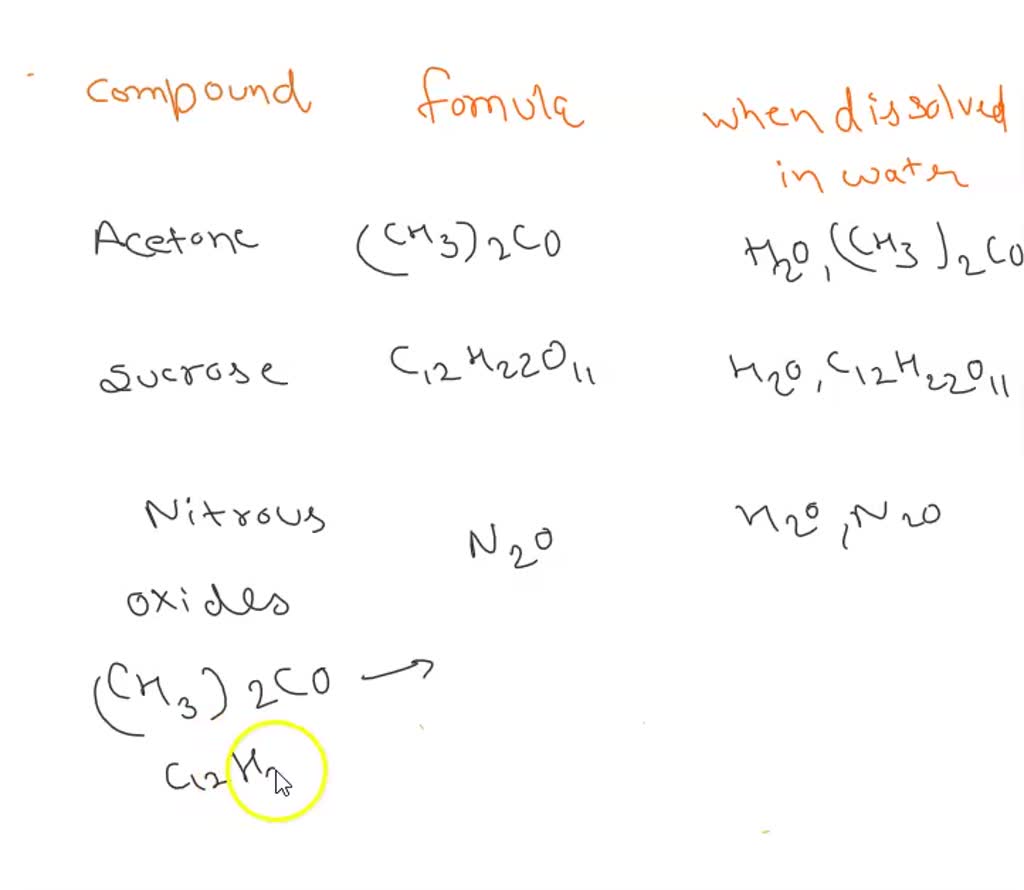 compound fomula when dissolved
in water
Acetone (CH3)2CO H2O, (CH3)2CO
Sucrose C12H22O11 H2O, C12H22O11
Nitrous N2O H2O, N2O
oxides
(CH3)2CO →
C12H2